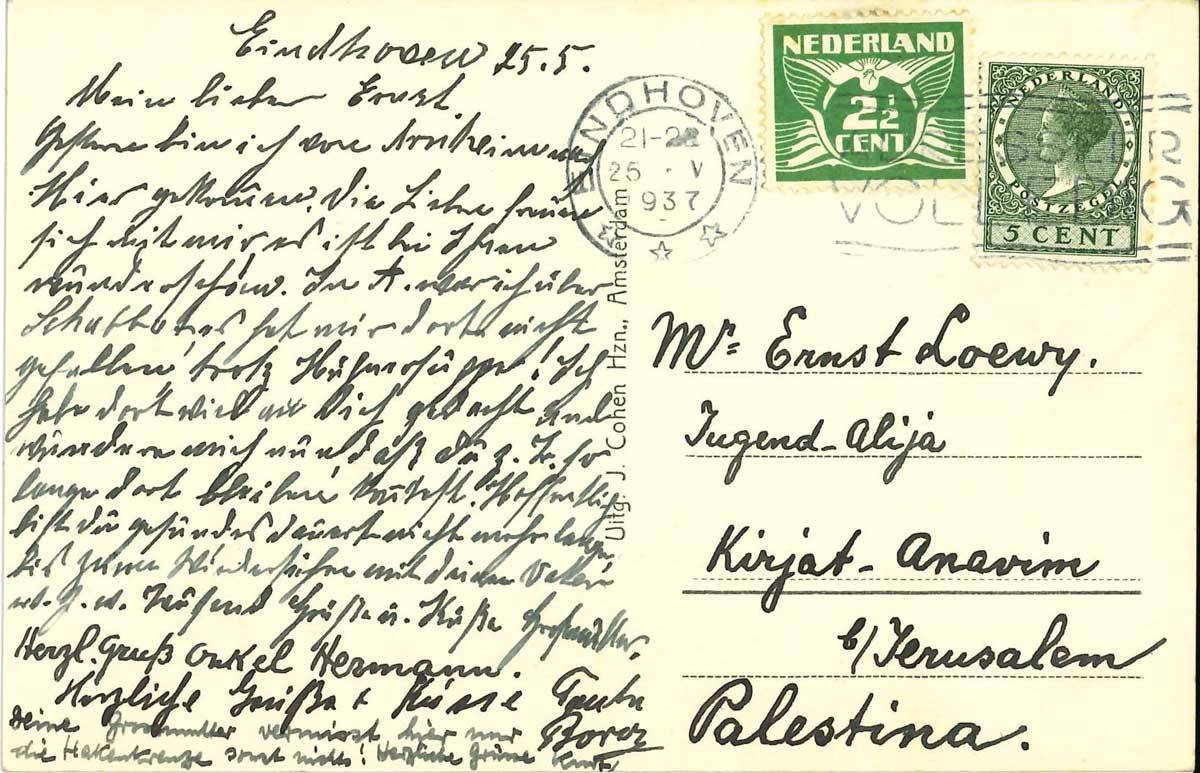 Eindhoven 25.5.
Mein lieber Ernst
Gestern bin ich von Arnheim nach
Hier gekommen. Die Lieben freuen
sich mit mir es ist bei Ihnen
wunderschön. In A. war ich über
Schabbes es hat mir dort nicht
gefallen trotz Hühnersuppe! Ich
habe dort viel an Dich gedacht und
wundere mich nur daß Du z. Zt. so
lange dort bleiben konntest. Hoffentlich
bist Du gesund es dauert nicht mehr lange
bis zum Wiedersehen mit deinen
u. s. w. Tausend Grüße u. Küße Großmutter.
Herzl. Gruß Onkel Hermann.
Herzliche Grüße + Küsse Tante
deine Grossmutter vermisst hier nur
die Hakenkreuze sonst nichts! Herzliche Grüsse Kurt
EINDHOVEN
21-22
25 . V
1937
NEDERLAND
2½
CENT
NEDERLAND
POSTZEGEL
5 CENT
Uitg. J. Cohen Hzn., Amsterdam
Mr= Ernst Loewy.
Jugend-Alija
Kirjat-Anavim
b/Jerusalem
Palestina.